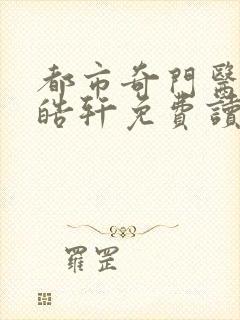 都市奇門醫
皓軒免費讀
羅罡